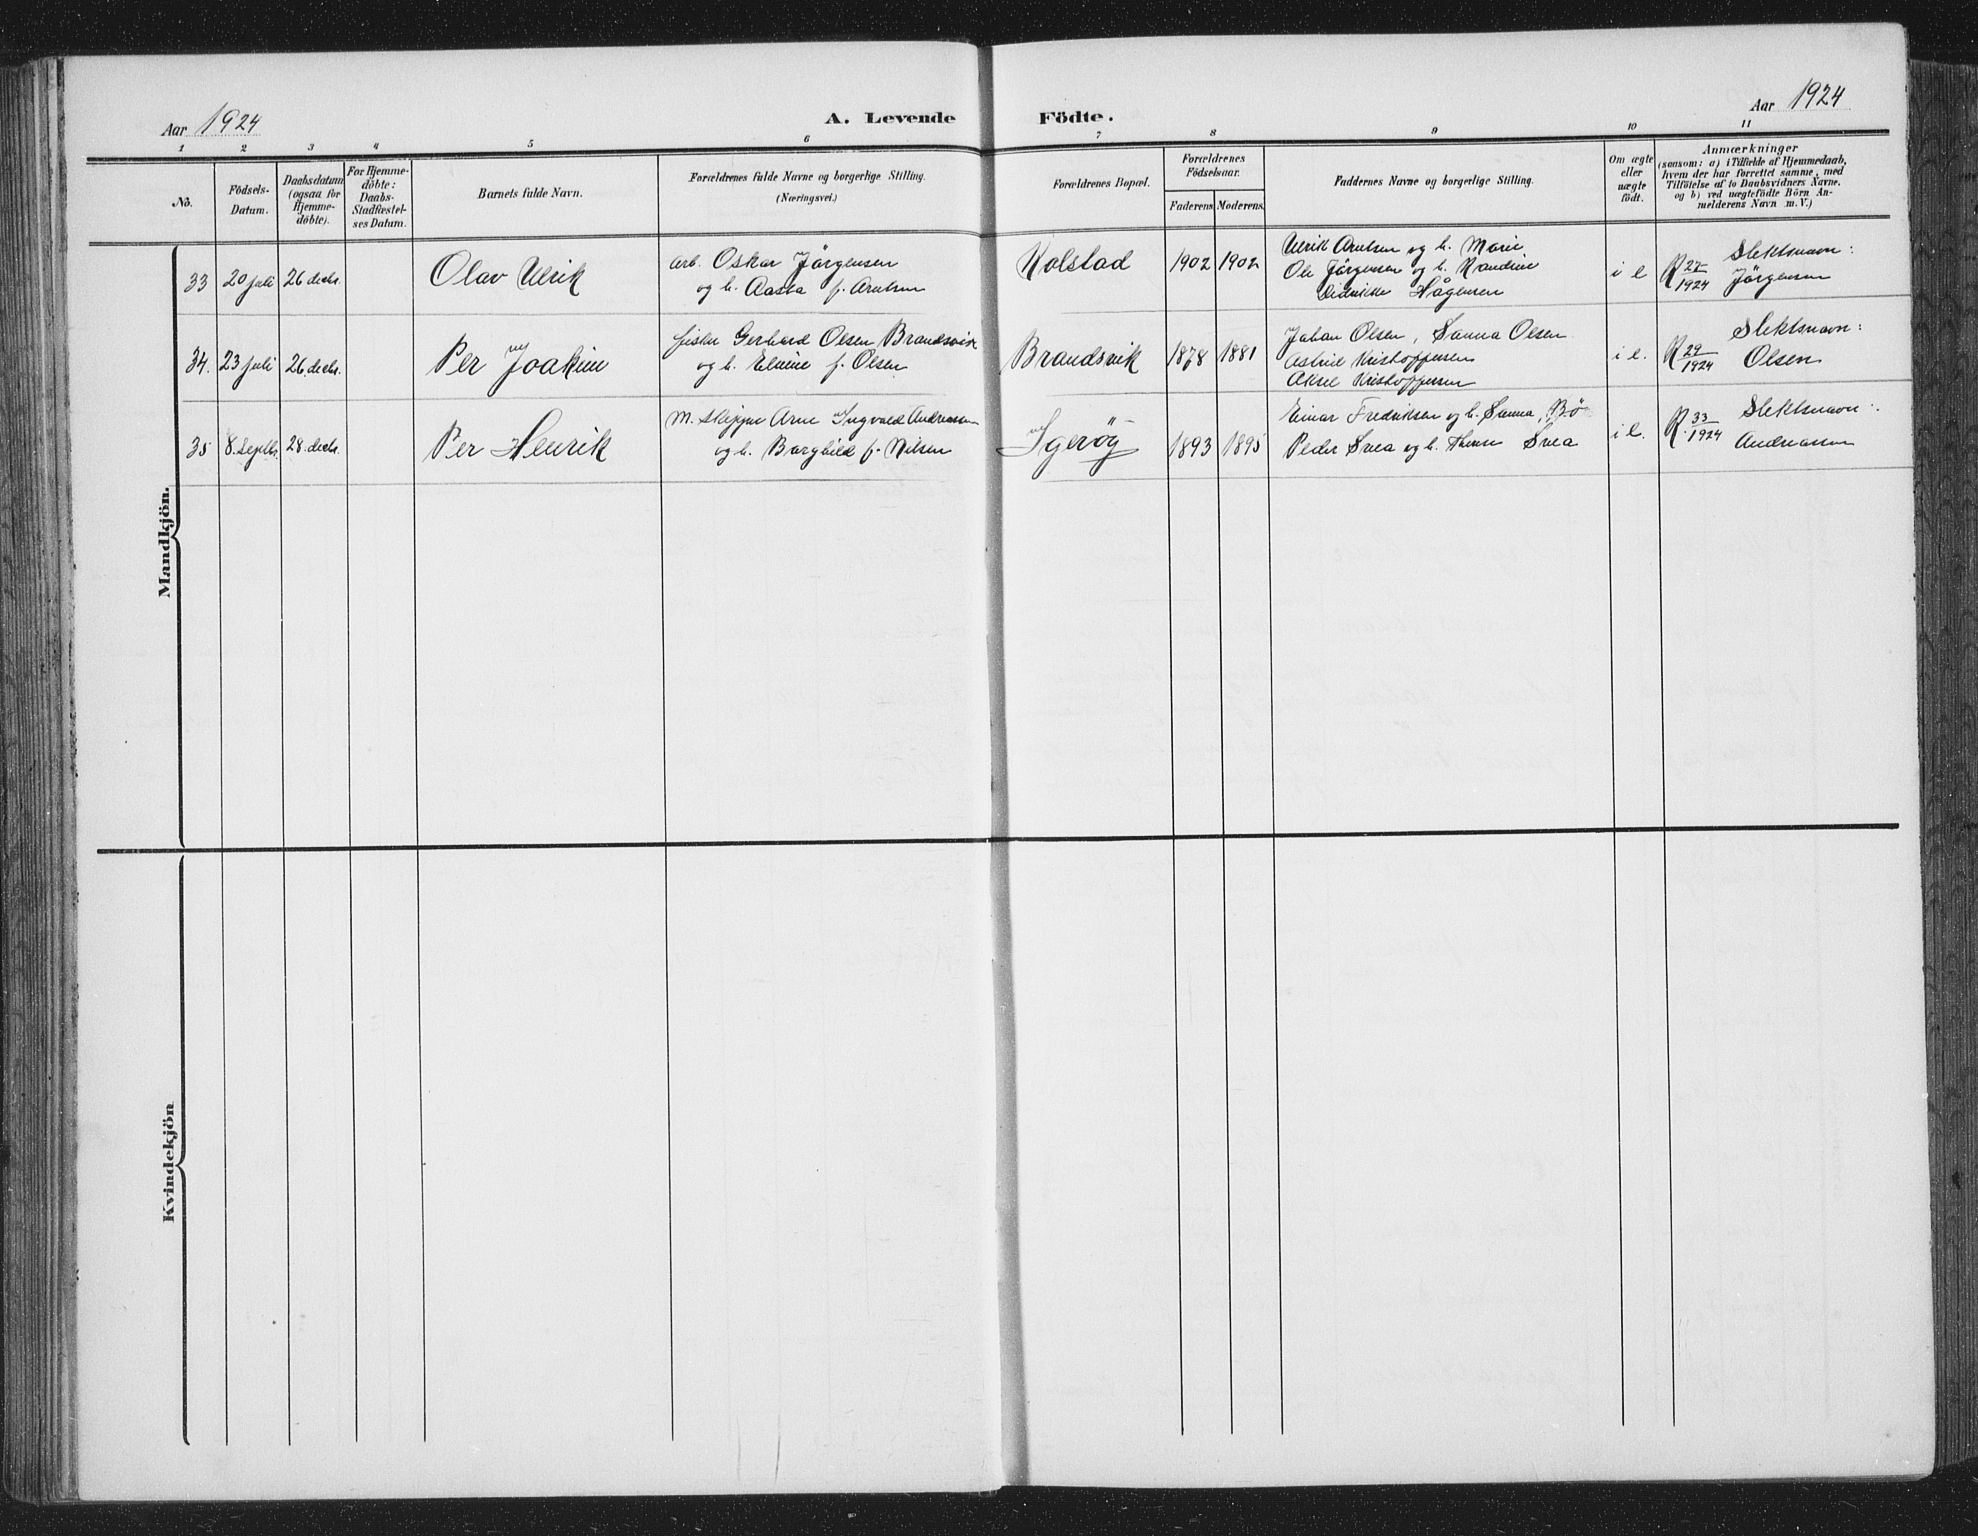 Aar 1924
A. Levende Födte.
Aar 1924
1 2 3 4 5 6 7 8 9 10 11
No.
Födsels-
Datum.
Daabsdatum
(ogsaa for
Hjemme-
döbte).
For Hjemme-
döbte:
Daabs-
Stadfæstel-
ses Datum.
Barnets fulde Navn.
Forældrenes fulde Navne og borgerlige Stilling.
(Næringsvei.)
Forældrenes Bopæl.
Forældrenes
Födselsaar.
Faderens Moderens
Faddernes Navne og borgerlige Stilling.
Om ægte
eller
uægte
født.
Anmærkninger
(saasom: a) i Tilfælde af Hjemmedaab,
hvem der har forrettet samme, med
Tilföielse af to Daabsvidners Navne.
og b) ved uægtefödte Börn An-
melderens Navn m. V.)
Mandkjön.
33 20 juli 26 decbr.
Olav Ulrik
arb. Oskar Jörgensen
og h. Aasta f. Arntsen
Kolstad
1902 1902
Ulrik Arntsen og h. Marie
Ole Jörgensen og h. Randine
Didrikke Hågensen
i e
R 27/1924
Slektsnavn:
Jörgensen
34. 23 juli 26. decbr.
Per Joakim
fisker Gerhard Olsen Brandsvik
og h. Elmine f. Olsen
Brandsvik
1878 1881
Johan Olsen, Sanna Olsen
Astrid Kristoffersen
Aksel Kristoffersen
i e.
R 29/1924
Slektsnavn:
Olsen
35 8. septbr. 28. decbr.
Per Henrik
M. skipper Arne Ingvald Andreassen
og h. Borghild f. Nilsen
Igerøy
1893 1895
Einar Fredriksen og h. Sanna, Bö
Peder Svea og h. Svea
i e.
R. 33/1924
Slektsnavn:
Andreassen
Kvindekjön